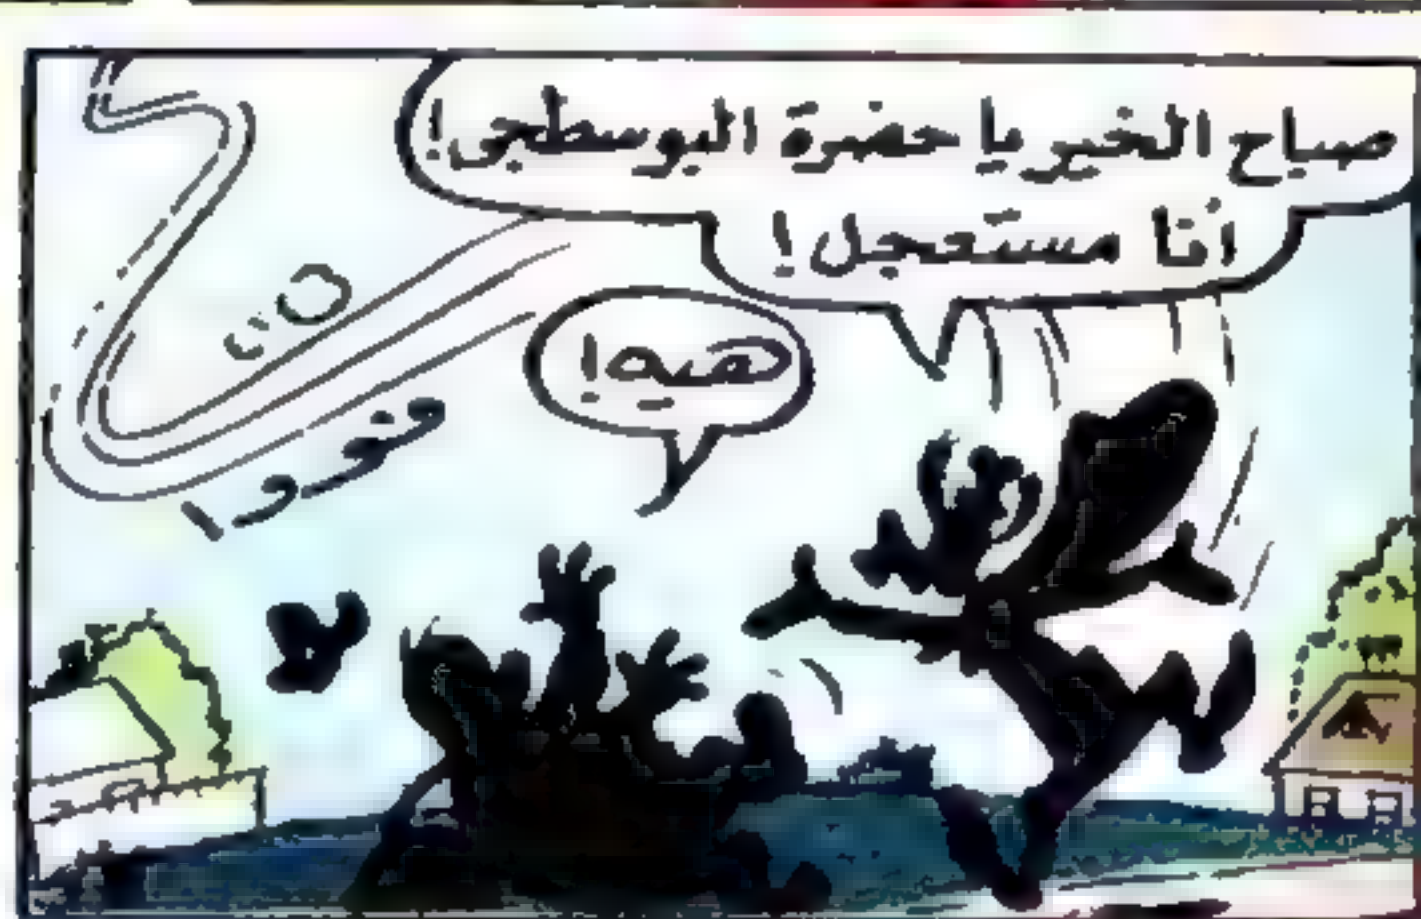 صباح الخير يا حضرة البوسطجى!
أنا مستعجل!
هيه!